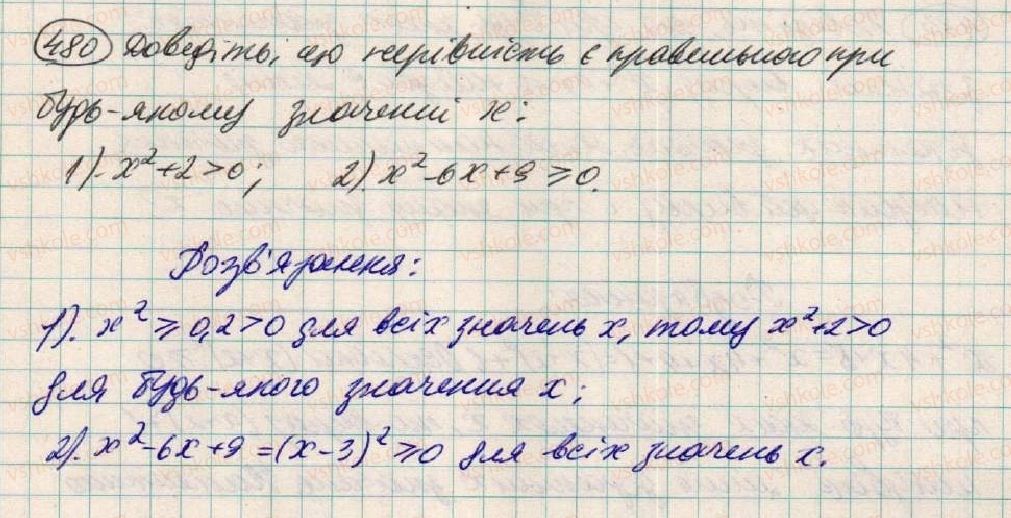 480 Доведіть, що нерівність є правильною при
будь-якому значенні x:
1). x²+2>0; 2). x²-6x+9≥0.
Розв'язання:
1). x²≥0, 2>0 для всіх значень x, тому x²+2>0
для будь-якого значення x;
2). x²-6x+9=(x-3)²≥0 для всіх значень x.